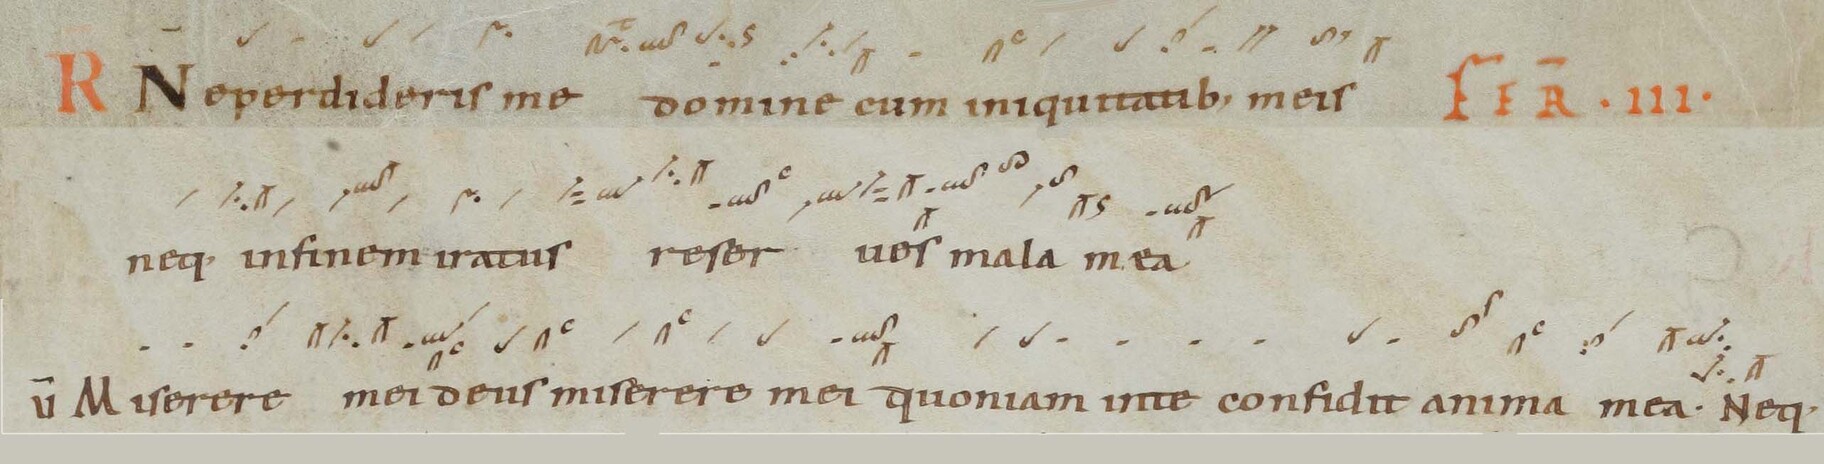 R̄ N̄ eperdideris me domine cum iniquitatib; meis FER̄ · III ·
neq. infinem iratus reser ues mala mea
v̄ Miserere mei deus miserere mei quoniam inte confidit anima mea · Neq.